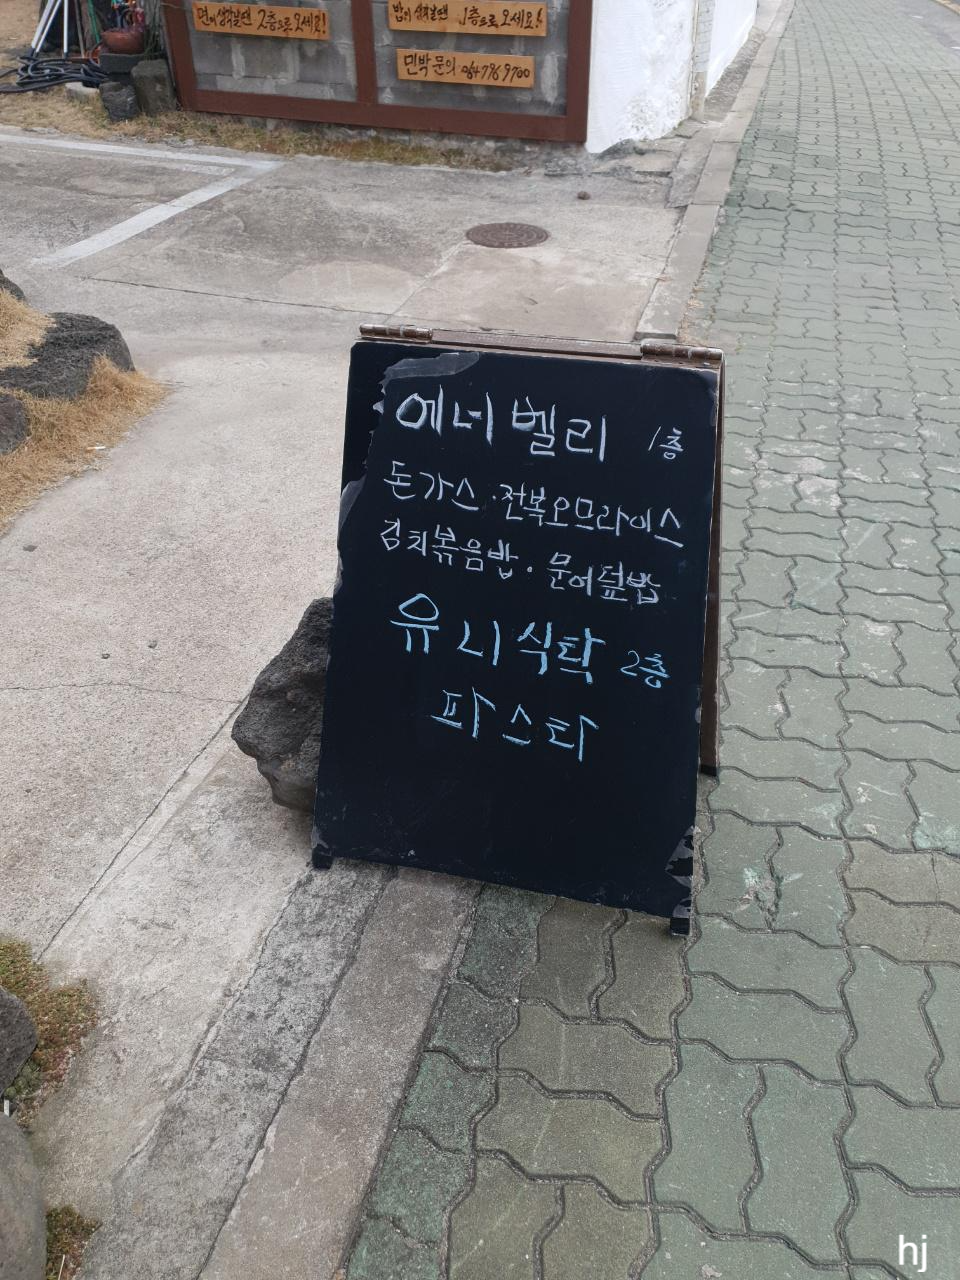 면이 생각날땐 2층으로 오세요!
밥이 생각날땐 1층으로 오세요!
민박문의 064 796 9700
에너벨리 1층
돈가스·전복오므라이스
김치볶음밥·문어덮밥
유니식탁 2층
파스타
hj